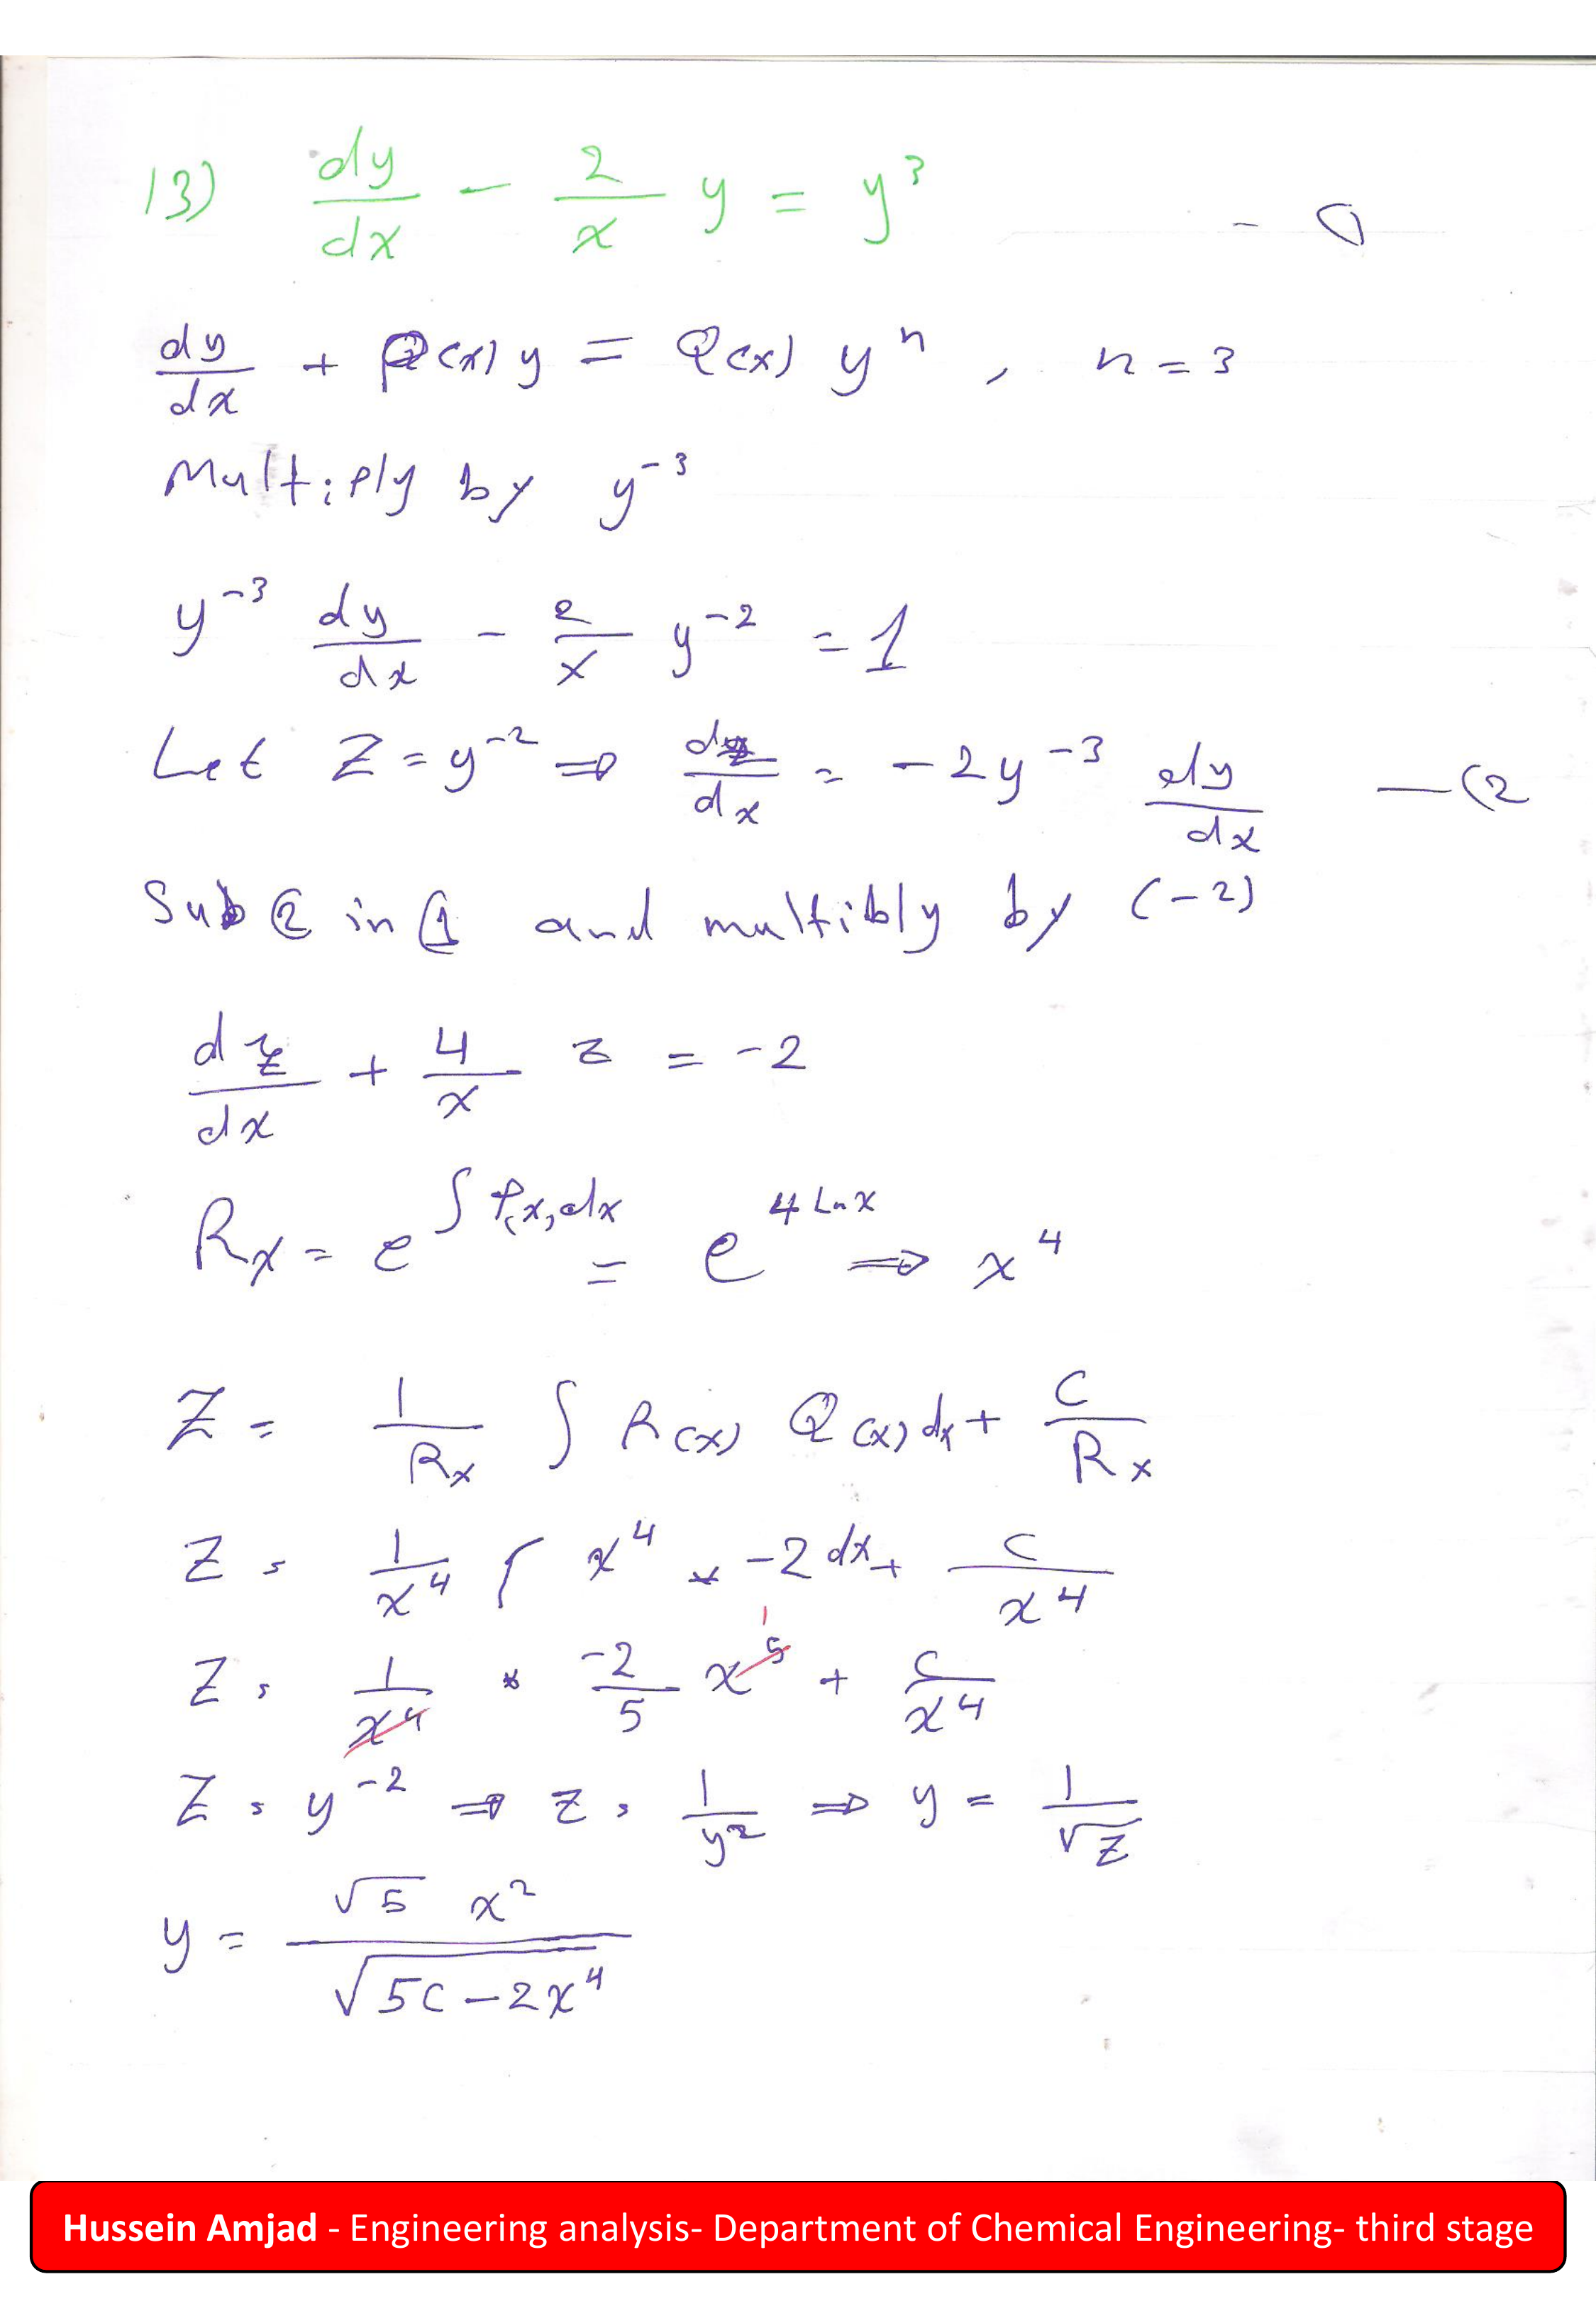 13) dy/dx - 2/x y = y³ - 1
dy/dx + P(x) y = Q(x) yⁿ , n = 3
Multiply by y⁻³
y⁻³ dy/dx - 2/x y⁻² = 1
Let Z = y⁻² ⇒ dz/dx = -2y⁻³ dy/dx — (2
Sub (2 in (1 and multibly by (-2)
dz/dx + 4/x z = -2
Rx = e^∫P(x)dx = e^4 Ln x ⇒ x⁴
Z = 1/Rx ∫ R(x) Q(x) dx + C/Rx
Z = 1/x⁴ ∫ x⁴ * -2 dx + C/x⁴
Z = 1/x⁴ * -2/5 x⁵ 1 + C/x⁴
Z = y⁻² ⇒ Z = 1/y² ⇒ y = 1/√Z
y = √5 x² / √(5C - 2x⁴)
Hussein Amjad - Engineering analysis- Department of Chemical Engineering- third stage